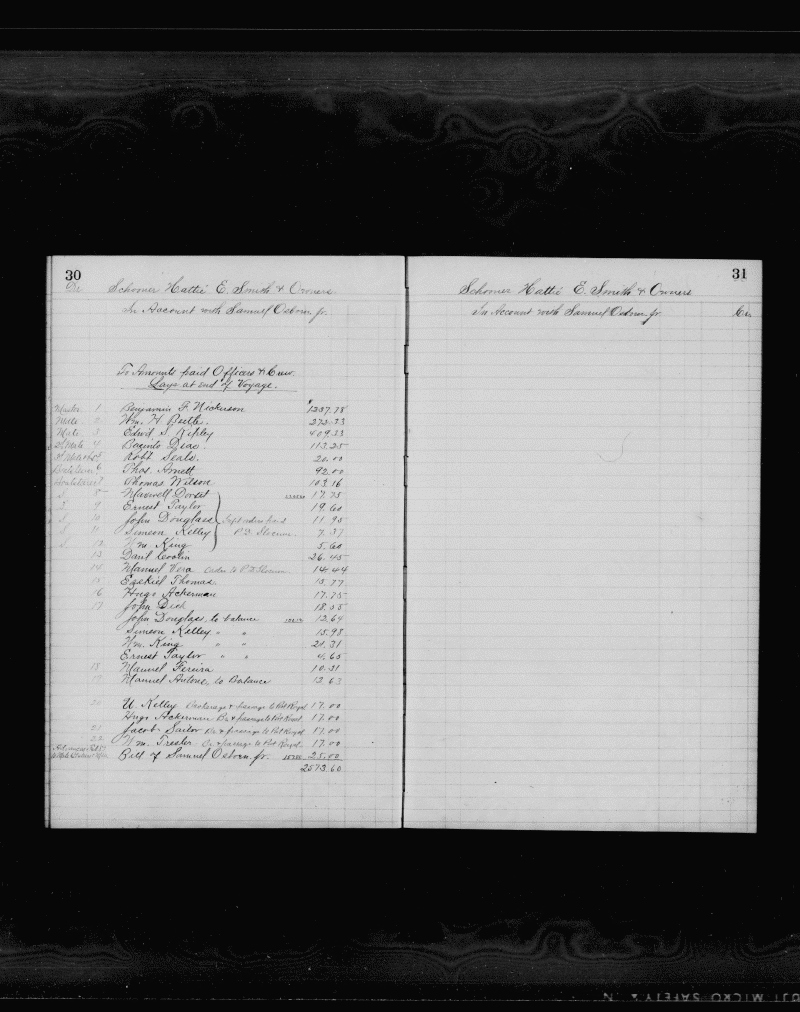 30
Dr Schooner Hattie E. Smith & Owners
In Account with Samuel Osborn jr.
To Amounts paid Officers & Crew.
Lays at end of Voyage.
Master 1. Benjamin F. Nickerson $1237.78
Mate 2 Wm. H. Beetle. 272.33
Mate 3 Edwd S. Ripley 409.33
2d Mate 4 Dias. 113.25
5 Robt Seals. 20.00
6 Thos. Arnett 92.00
7 Thomas Wilson 103.16
8 Maxwell Dorset 17.75
9 Ernest Taylor 19.60
10 John Douglass 11.95
11 Simeon Kelley P.D. Slocum 7.37
12 Wm. King 5.60
13 Danl 26.45
14 Manuel Vera Order to P.D. Slocum 14.44
15 Ezekiel Thomas 15.77
16 Hugo Ackerman 17.75
17 John Dick 18.05
John Douglass, to balance 12.64
Simeon Kelley " " 15.98
Wm. King " " 21.31
Ernest Taylor " " 4.65
18 Manuel Pereira 10.31
19 Manuel Antone, to Balance 13.63
20 U. Kelley Brokerage & passage to Port Royal 17.00
Hugo Ackerman Br. & passage to Port Royal 17.00
21 Jacob Sailor Br. & passage to Port Royal 17.00
22 Wm. Trester Br. & passage to Port Royal 17.00
Bill of Samuel Osborn jr. 25.00
2573.60
31
Schooner Hattie E. Smith & Owners
In Account with Samuel Osborn jr. Cr.
UJI MICRO SAFETY N